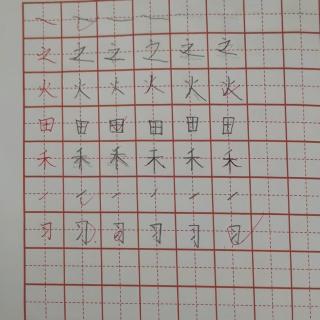 之 之 之 之 之 之
火 火 火 火 火 火
田 田 田 田 田 田
禾 禾 禾 禾 禾 禾
习 习 习 习 习 习